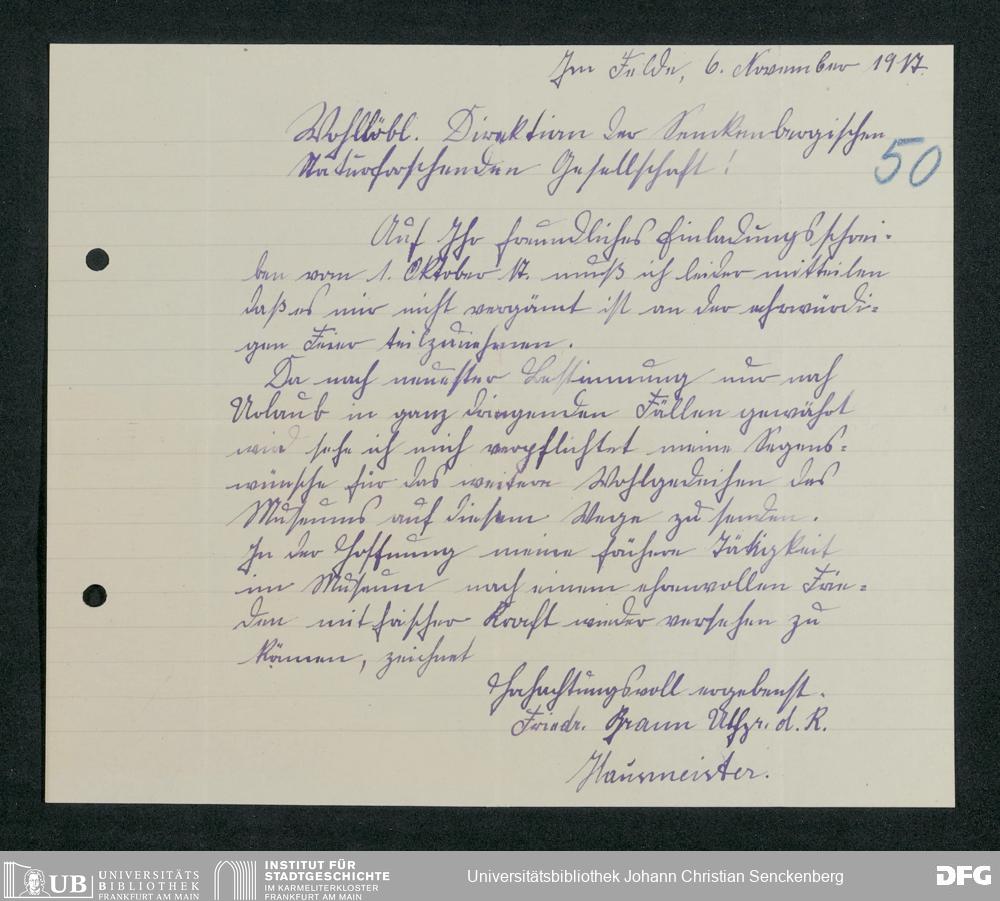 Im Felde, 6. November 1917.
Wohllöbl. Direktion der Senckenbergischen
Naturforschenden Gesellschaft!
50
Auf Ihr freundliches Einladungsschrei-
ben vom 1. Oktober 17. muß ich leider mitteilen
daß es mir nicht vergönnt ist an der ehrwürdi-
gen Feier teilzunehmen.
Da nach neuester Bestimmung nur noch
Urlaub in ganz dringenden Fällen gewährt
wird sehe ich mich verpflichtet meine Segens-
wünsche für das weitere Wohlgedeihen des
Museums auf diesem Wege zu senden.
In der Hoffnung meine frühere Tätigkeit
im Museum nach einem ehrenvollen Frie-
den mit frischer Kraft wieder versehen zu
können, zeichnet
Hochachtungsvoll ergebenst.
Friedr. Braun Utffz. d. R.
Hausmeister.
UB UNIVERSITÄTS
BIBLIOTHEK
FRANKFURT AM MAIN
INSTITUT FÜR
STADTGESCHICHTE
IM KARMELITERKLOSTER
FRANKFURT AM MAIN
Universitätsbibliothek Johann Christian Senckenberg
DFG